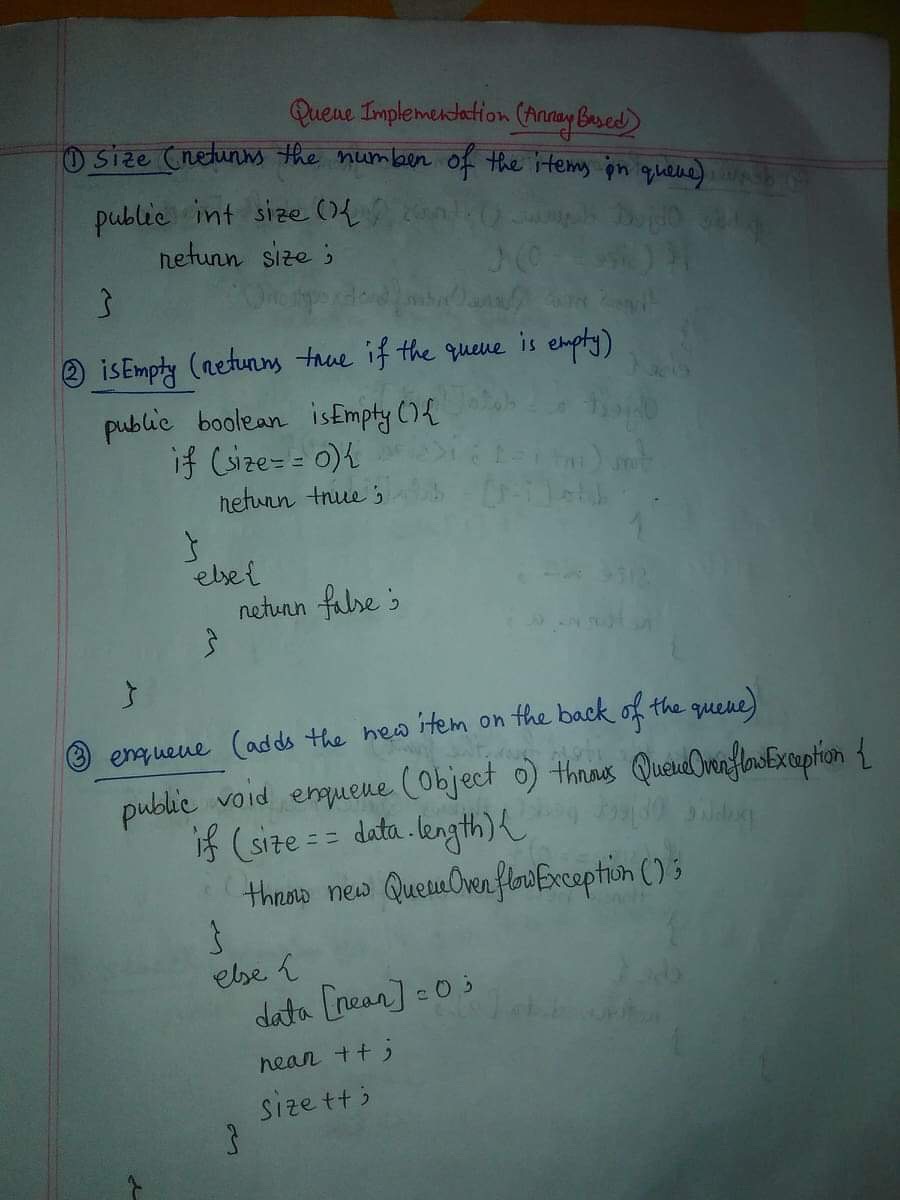 Queue Implementation (Array Based)
① size (returns the number of the items in queue)
public int size (){
return size ;
}
② isEmpty (returns true if the queue is empty)
public boolean isEmpty (){
if (size == 0){
return true ;
}
else{
return false ;
}
}
③ enqueue (adds the new item on the back of the queue)
public void enqueue (Object o) throws QueueOverflowException {
if (size == data.length){
throw new QueueOverflowException () ;
}
else {
data [rear] = o ;
rear ++ ;
size ++ ;
}
}